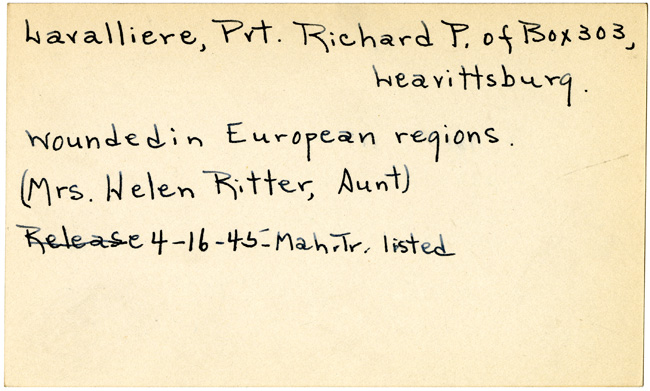 Lavalliere, Pvt. Richard P. of Box 303,
Leavittsburg.
wounded in European regions.
(Mrs. Helen Ritter, Aunt)
Release 4-16-45-Mah.Tr. listed